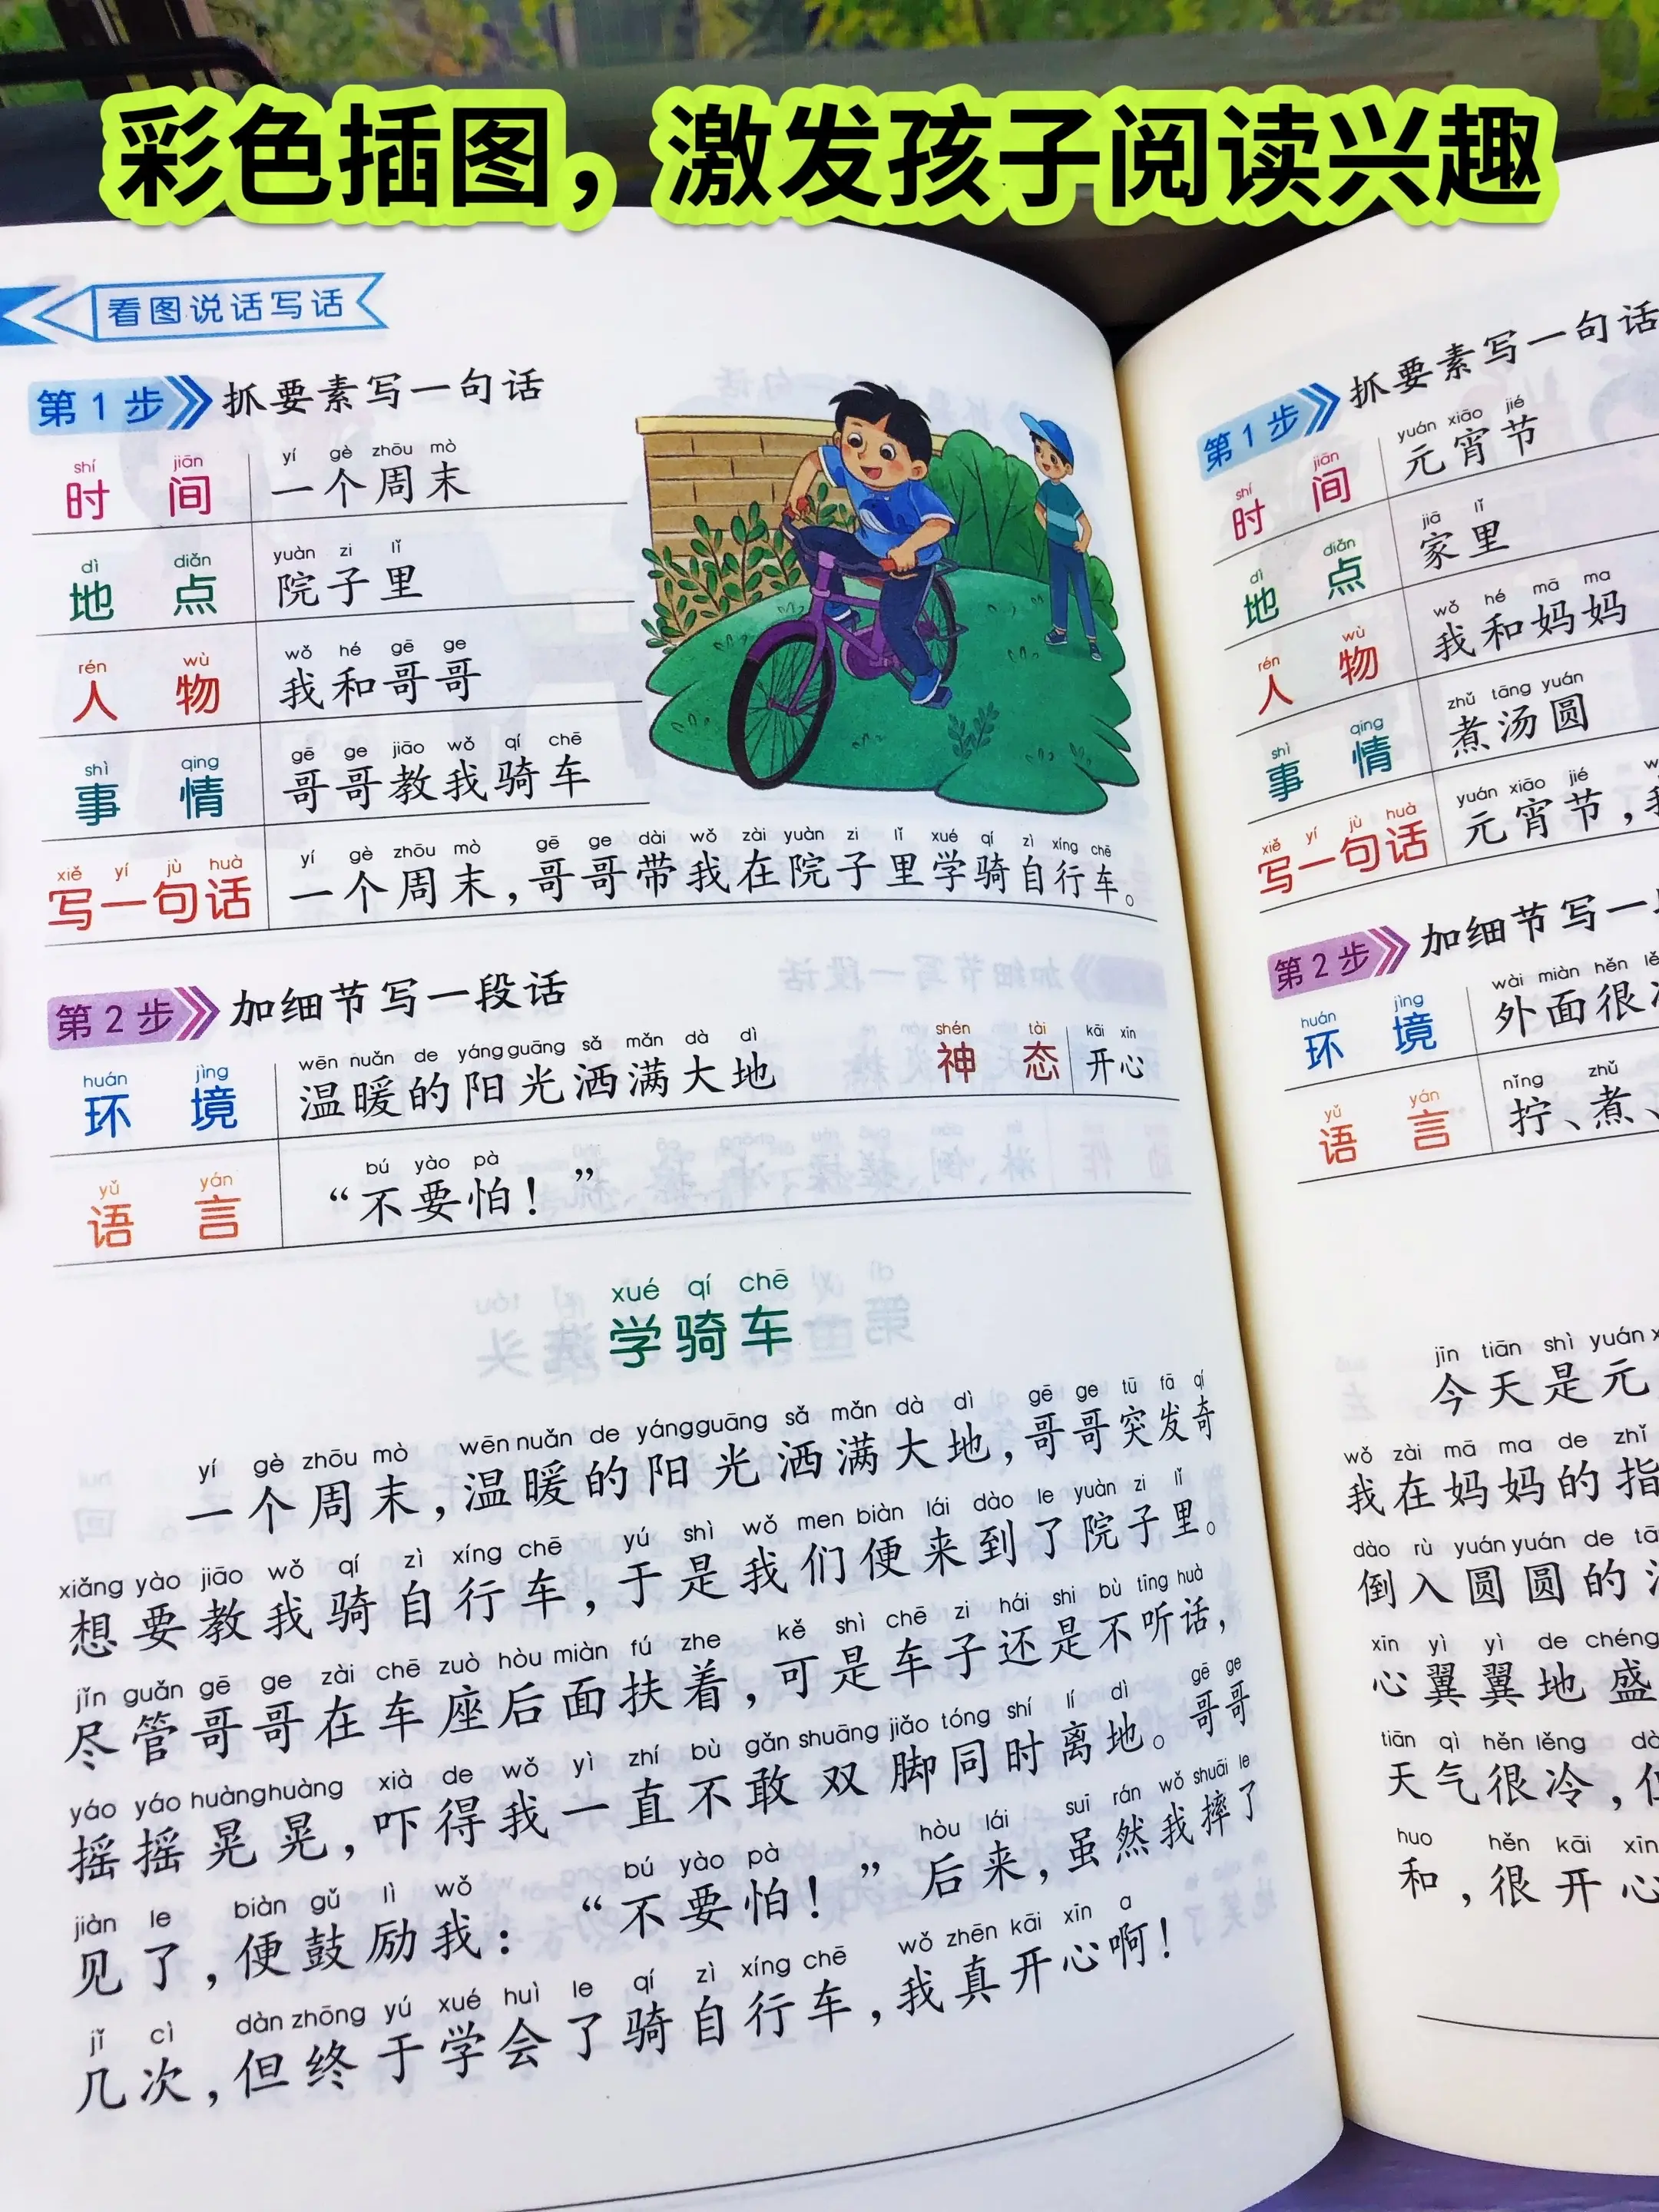 彩色插图，激发孩子阅读兴趣
看图说话写话
第1步 抓要素写一句话
shí jiān yí gè zhōu mò
时间 一个周末
dì diǎn yuàn zi lǐ
地点 院子里
rén wù wǒ hé gē ge
人物 我和哥哥
shì qing gē ge jiāo wǒ qí chē
事情 哥哥教我骑车
xiě yí jù huà yí gè zhōu mò gē ge dài wǒ zài yuàn zi lǐ xué qí zì xíng chē
写一句话 一个周末，哥哥带我在院子里学骑自行车。
第2步 加细节写一段话
huán jìng wēn nuǎn de yáng guāng sǎ mǎn dà dì shén tài kāi xīn
环境 温暖的阳光洒满大地 神态 开心
yǔ yán bú yào pà
语言 “不要怕！”
xué qí chē
学骑车
yí gè zhōu mò wēn nuǎn de yángguāng sǎ mǎn dà dì gē ge tū fā qí
一个周末，温暖的阳光洒满大地，哥哥突发奇
xiǎng yào jiāo wǒ qí zì xíng chē yú shì wǒ men biàn lái dào le yuàn zi lǐ
想要教我骑自行车，于是我们便来到了院子里。
jǐn guǎn gē ge zài chē zuò hòu miàn fú zhe kě shì chē zi hái shi bù tīng huà
尽管哥哥在车座后面扶着，可是车子还是不听话，
yáo yáo huànghuàng xià de wǒ yì zhí bù gǎn shuāng jiǎo tóng shí lí dì gē ge
摇摇晃晃，吓得我一直不敢双脚同时离地。哥哥
jiàn le biàn gǔ lì wǒ bú yào pà hòu lái suī rán wǒ shuāi le
见了，便鼓励我：“不要怕！”后来，虽然我摔了
jǐ cì dàn zhōng yú xué huì le qí zì xíng chē wǒ zhēn kāi xīn a
几次，但终于学会了骑自行车，我真开心啊！
第1步 抓要素写一句话
shí jiān yuán xiāo jié
时间 元宵节
dì diǎn jiā lǐ
地点 家里
rén wù wǒ hé mā ma
人物 我和妈妈
shì qing zhǔ tāng yuán
事情 煮汤圆
xiě yí jù huà yuán xiāo jié
写一句话 元宵节，
第2步 加细节写一
huán jìng wài miàn hěn
环境 外面很
yǔ yán nǐng zhǔ
语言 拧、煮、
jīn tiān shì yuán
今天是元
wǒ zài mā ma de zhǐ
我在妈妈的指
dào rù yuán yuán de
倒入圆圆的
xīn yì yì de chéng
心翼翼地盛
tiān qì hěn lěng
天气很冷，
huo hěn kāi xīn
和，很开心